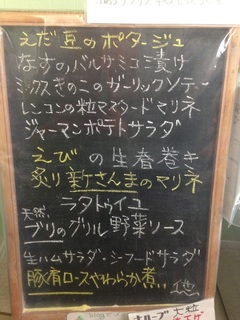 えだ豆のポタージュ
なすのバルサミコ漬け
ミックスきのこのガーリックソテー
レンコンの粒マスタードマリネ
ジャーマンポテトサラダ
えびの生春巻き
炙り新さんまのマリネ
ラタトゥイユ
天然ブリのグリル野菜ソース
生ハムサラダ・シーフードサラダ
豚肩ロースやわらか煮‥他
blog
オリーブ 大粒